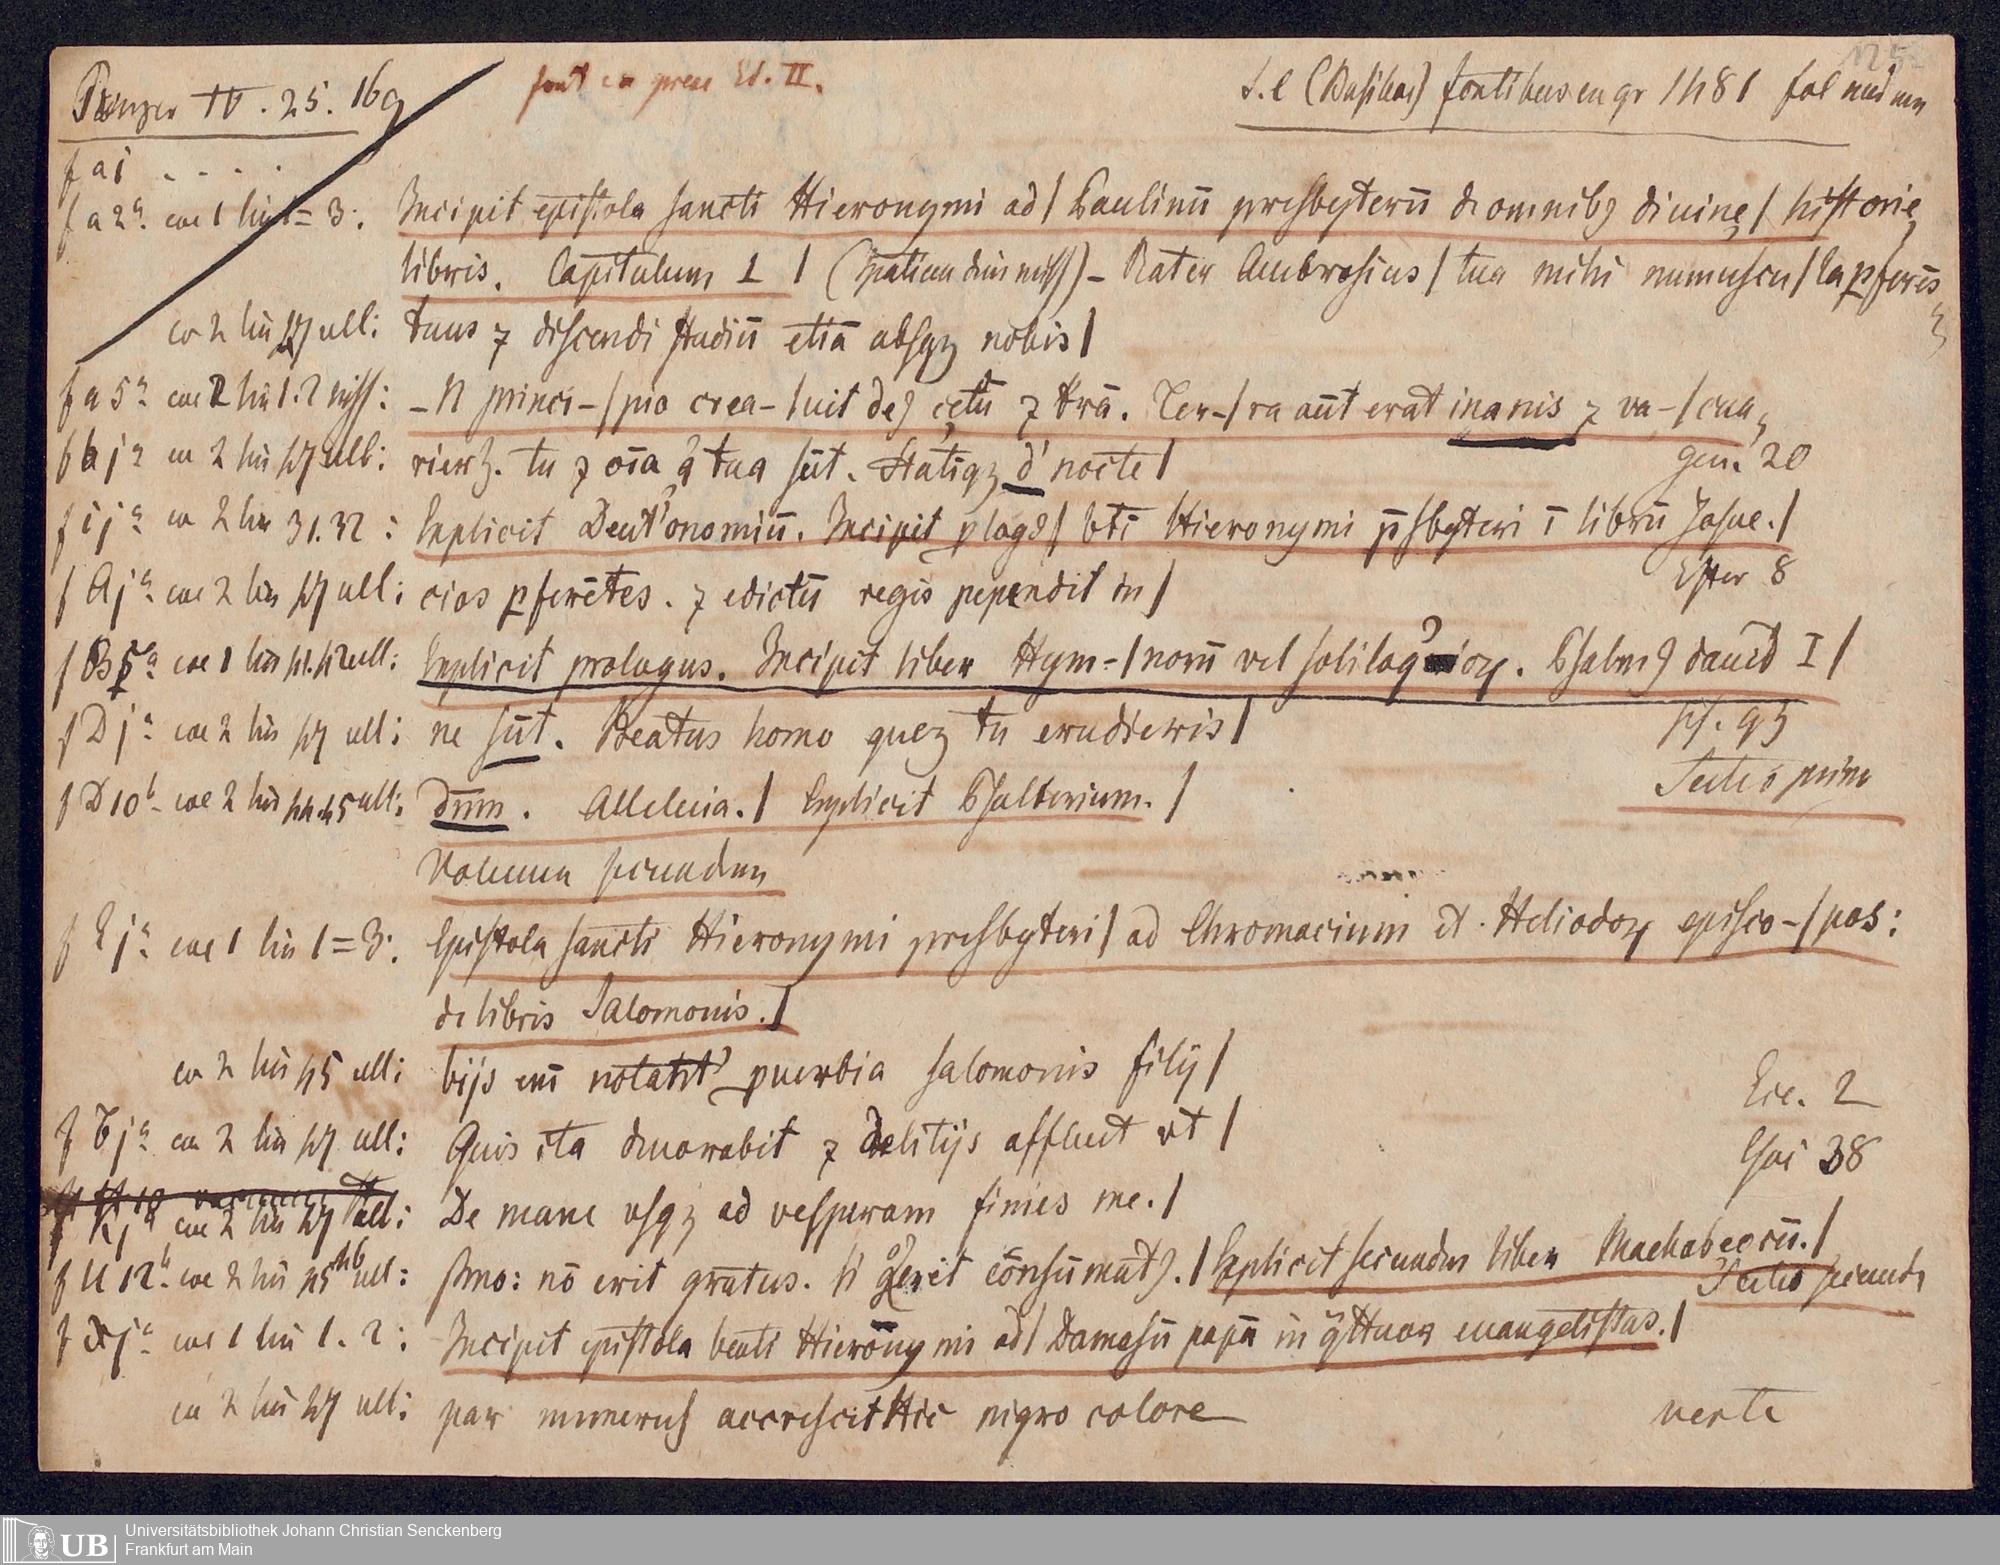 Panzer IV. 25. 169
font ex graec Ed. II.
S. l (Basileae) fontibus ex gr 1481 fol
f a i . . . .
f a 2ᵃ. col 1 lin 1=3: Incipit epistola sancti Hieronymi ad/ Paulinū presbyterū de omnibꝫ diuine/ historie
libris. Capitulum I / – Rater Ambrosius / tua mihi munuscu/la pferēs
co 2 lin 47 ult: tuus ⁊ discendi studiū etiā absqꝫ nobis/
f a 5ᵃ col 2 lin 1.2: – N princi-/pio crea-/uit deꝰ celū ⁊ trā. Ter-/ra aūt erat inanis ⁊ va-/cua,
f b jᵃ co 2 lin 47 ult: rierꝫ. tu ⁊ oīa q̄ tua sūt. Statiqꝫ d' nocte/
gen. 20
f i jᵃ co 2 lin 31. 32: Explicit Deut'onomiū. Incipit plogꝰ/ bti Hieronymi p̄sbyteri ī librū Josue./
f A jᵃ col 2 lin 47 ult: cias pferētes. ⁊ edictū regis pependit in/
Ester 8
f B 5ᵃ col 1 lin 41.42 ult: Explicit prologus. Incipit liber Hym-/norū vel soliloquioꝝ. Psalmꝰ dauid I/
f D jᵃ col 2 lin 47 ult: ne sūt. Beatus homo queꝫ tu erudieris/
ps. 93
f D 10ᵇ col 2 lin 44.45 ult: dnm. Alleluia./ Explicit Psalterium./
Volumen secundum
f E jᵃ col 1 lin 1=3: Epistola sancti Hieronymi presbyteri/ ad Chromacium et Heliodoꝝ episco-/pos:
de libris Salomonis./
co 2 lin 45 ult: bijs eni notant' puerbia salomonis filij/
Ecc. 2
f T jᵃ co 2 lin 47 ult: Quis ita deuorabit ⁊ delitijs affluet vt/
Esai 38
f K jᵃ col 2 lin 47 ult: De mane vsqꝫ ad vesperam finies me./
f U 12ᵇ col 2 lin 45 46 ult: smo: nō erit gratus. h' g̊ erit cōnsūmatꝰ./ Explicit secundus liber Machabeorū./
f x jᵃ col 1 lin 1. 2: Incipit epistola beati Hieronymi ad/ Damasū papā in q̄ttuor euangelistas./
co 2 lin 47 ult: par numerus accrescit Hic nigro colore
verte
Universitätsbibliothek Johann Christian Senckenberg
Frankfurt am Main
UB